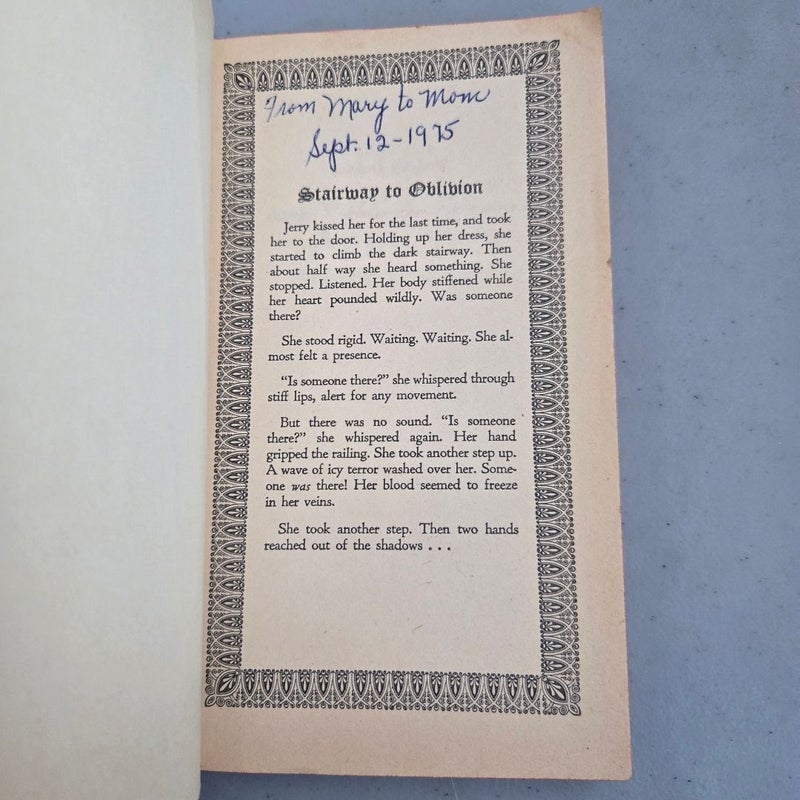 From Mary to Mom
Sept. 12-1975
Stairway to Oblivion
Jerry kissed her for the last time, and took
her to the door. Holding up her dress, she
started to climb the dark stairway. Then
about half way she heard something. She
stopped. Listened. Her body stiffened while
her heart pounded wildly. Was someone
there?
She stood rigid. Waiting. Waiting. She al-
most felt a presence.
“Is someone there?” she whispered through
stiff lips, alert for any movement.
But there was no sound. “Is someone
there?” she whispered again. Her hand
gripped the railing. She took another step up.
A wave of icy terror washed over her. Some-
one was there! Her blood seemed to freeze
in her veins.
She took another step. Then two hands
reached out of the shadows . . .